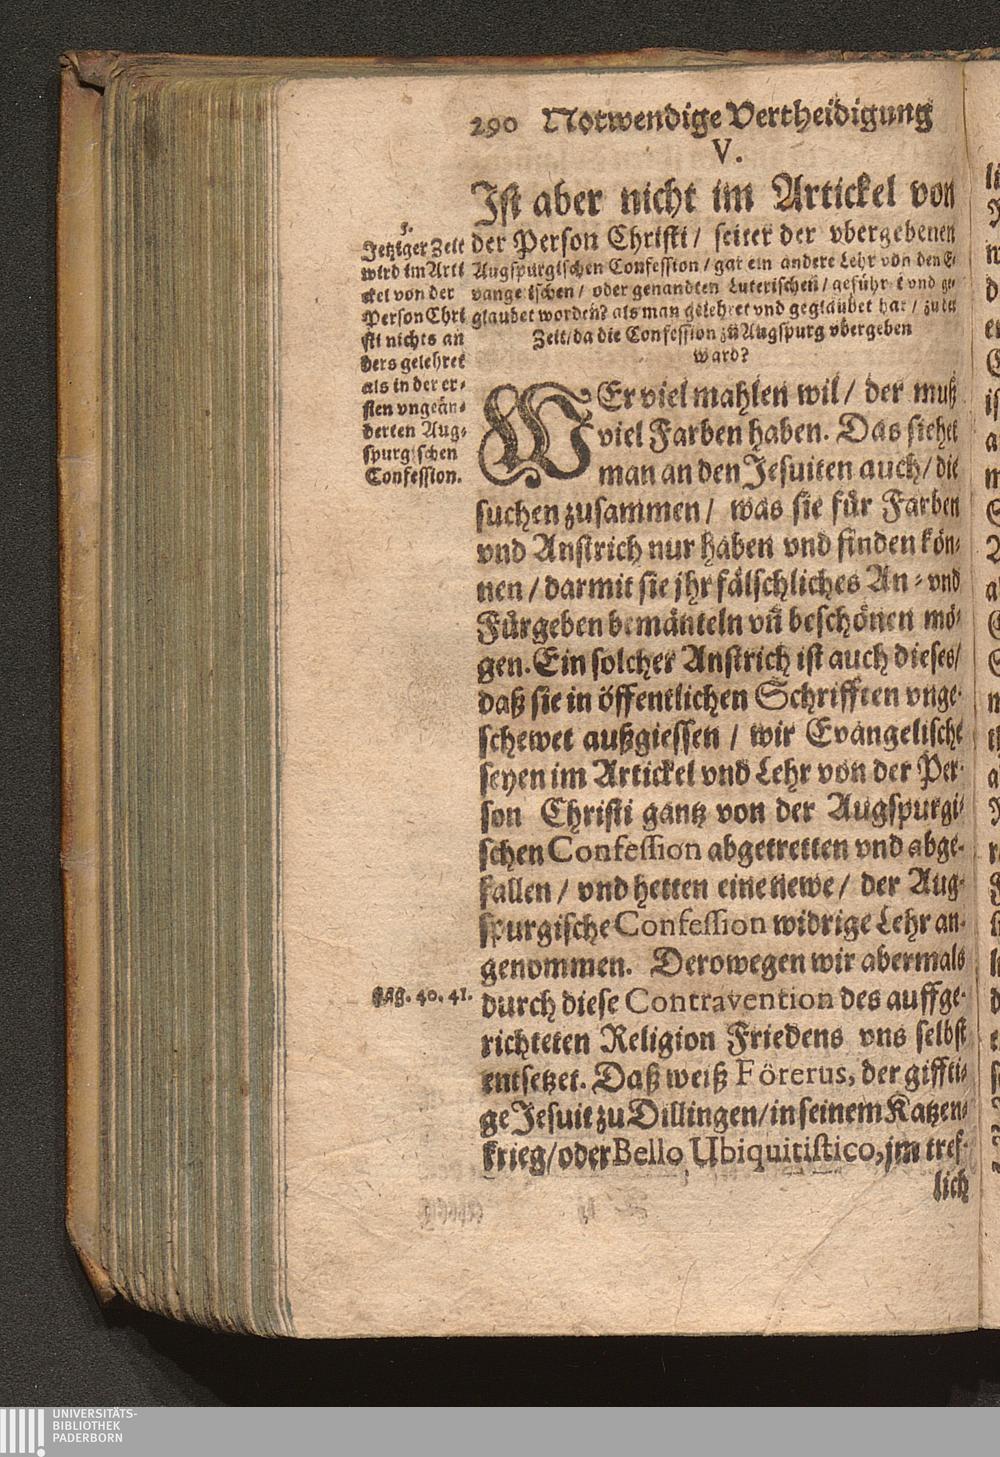 290 Notwendige Vertheidigung
V.
Ist aber nicht im Artickel von
der Person Christi / seiter der vbergebenen
Augspurgischen Confession / gar ein andere Lehr von den E-
vangelischen / oder genandten Luterischen / geführet vnd ge-
glaubet worden? als man gelehret vnd geglaubet hat / zu der
Zeit / da die Confession zu Augspurg vbergeben
ward?
5.
Jetziger Zeit
wird im Arti
ckel von der
Person Chri
sti nichts an
ders gelehret
als in der er-
sten vngeän-
derten Aug-
spurgischen
Confession.
WEr viel mahlen wil / der muß
viel Farben haben. Das siehet
man an den Jesuiten auch / die
suchen zusammen / was sie für Farben
vnd Anstrich nur haben vnd finden kön-
nen / darmit sie jhr fälschliches An- vnd
Fürgeben bemänteln vñ beschönen mö-
gen. Ein solcher Anstrich ist auch dieses /
daß sie in öffentlichen Schrifften vnge-
schewet außgiessen / wir Evangelische
seyen im Artickel vnd Lehr von der Per-
son Christi gantz von der Augspurgi-
schen Confession abgetretten vnd abge-
fallen / vnd hetten eine newe / der Aug-
spurgische Confession widrige Lehr an-
genommen. Derowegen wir abermals
pag. 40. 41.
durch diese Contravention des auffge-
richteten Religion Friedens vns selbst
entsetzet. Daß weiß Förerus, der giffti-
ge Jesuit zu Dillingen / in seinem Katzen-
krieg / oder Bello Ubiquitistico, jm tref-
lich
UNIVERSITÄTS-
BIBLIOTHEK
PADERBORN